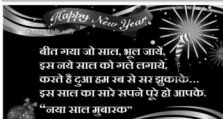 Happy New Year
बीत गया जो साल, भूल जायें,
इस नये साल को गले लगाये,
करते है दुआ हम रब से सर झुकाके...
इस साल का सारे सपने पूरे हो आपके.
“नया साल मुबारक”